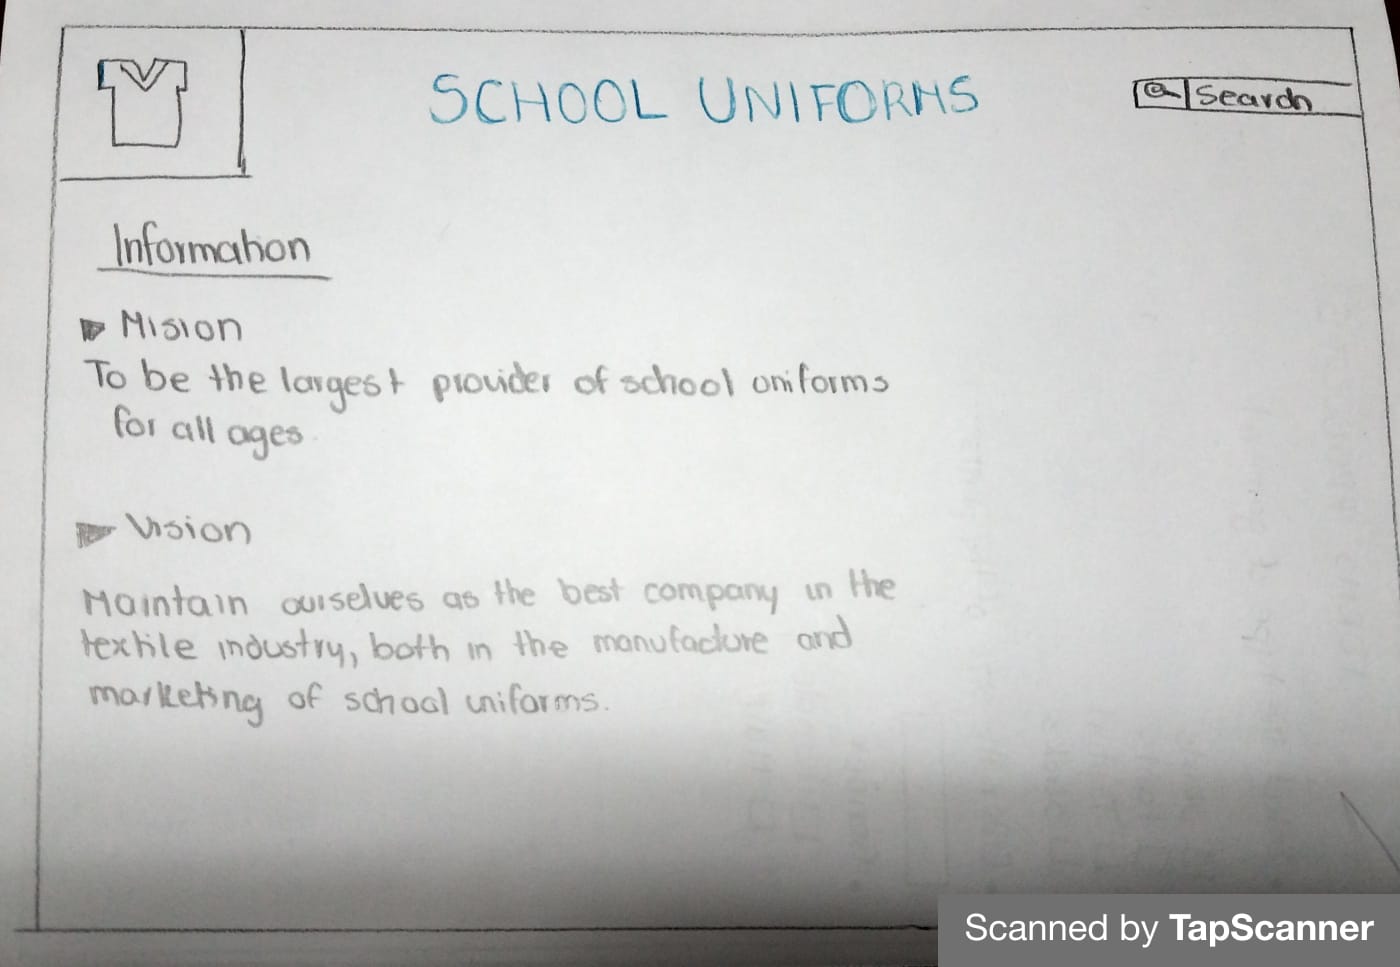 SCHOOL UNIFORMS
Search
Information
Mision
To be the largest provider of school uniforms
for all ages
Vision
Maintain ourselves as the best company in the
textile industry, both in the manufacture and
marketing of school uniforms.
Scanned by TapScanner